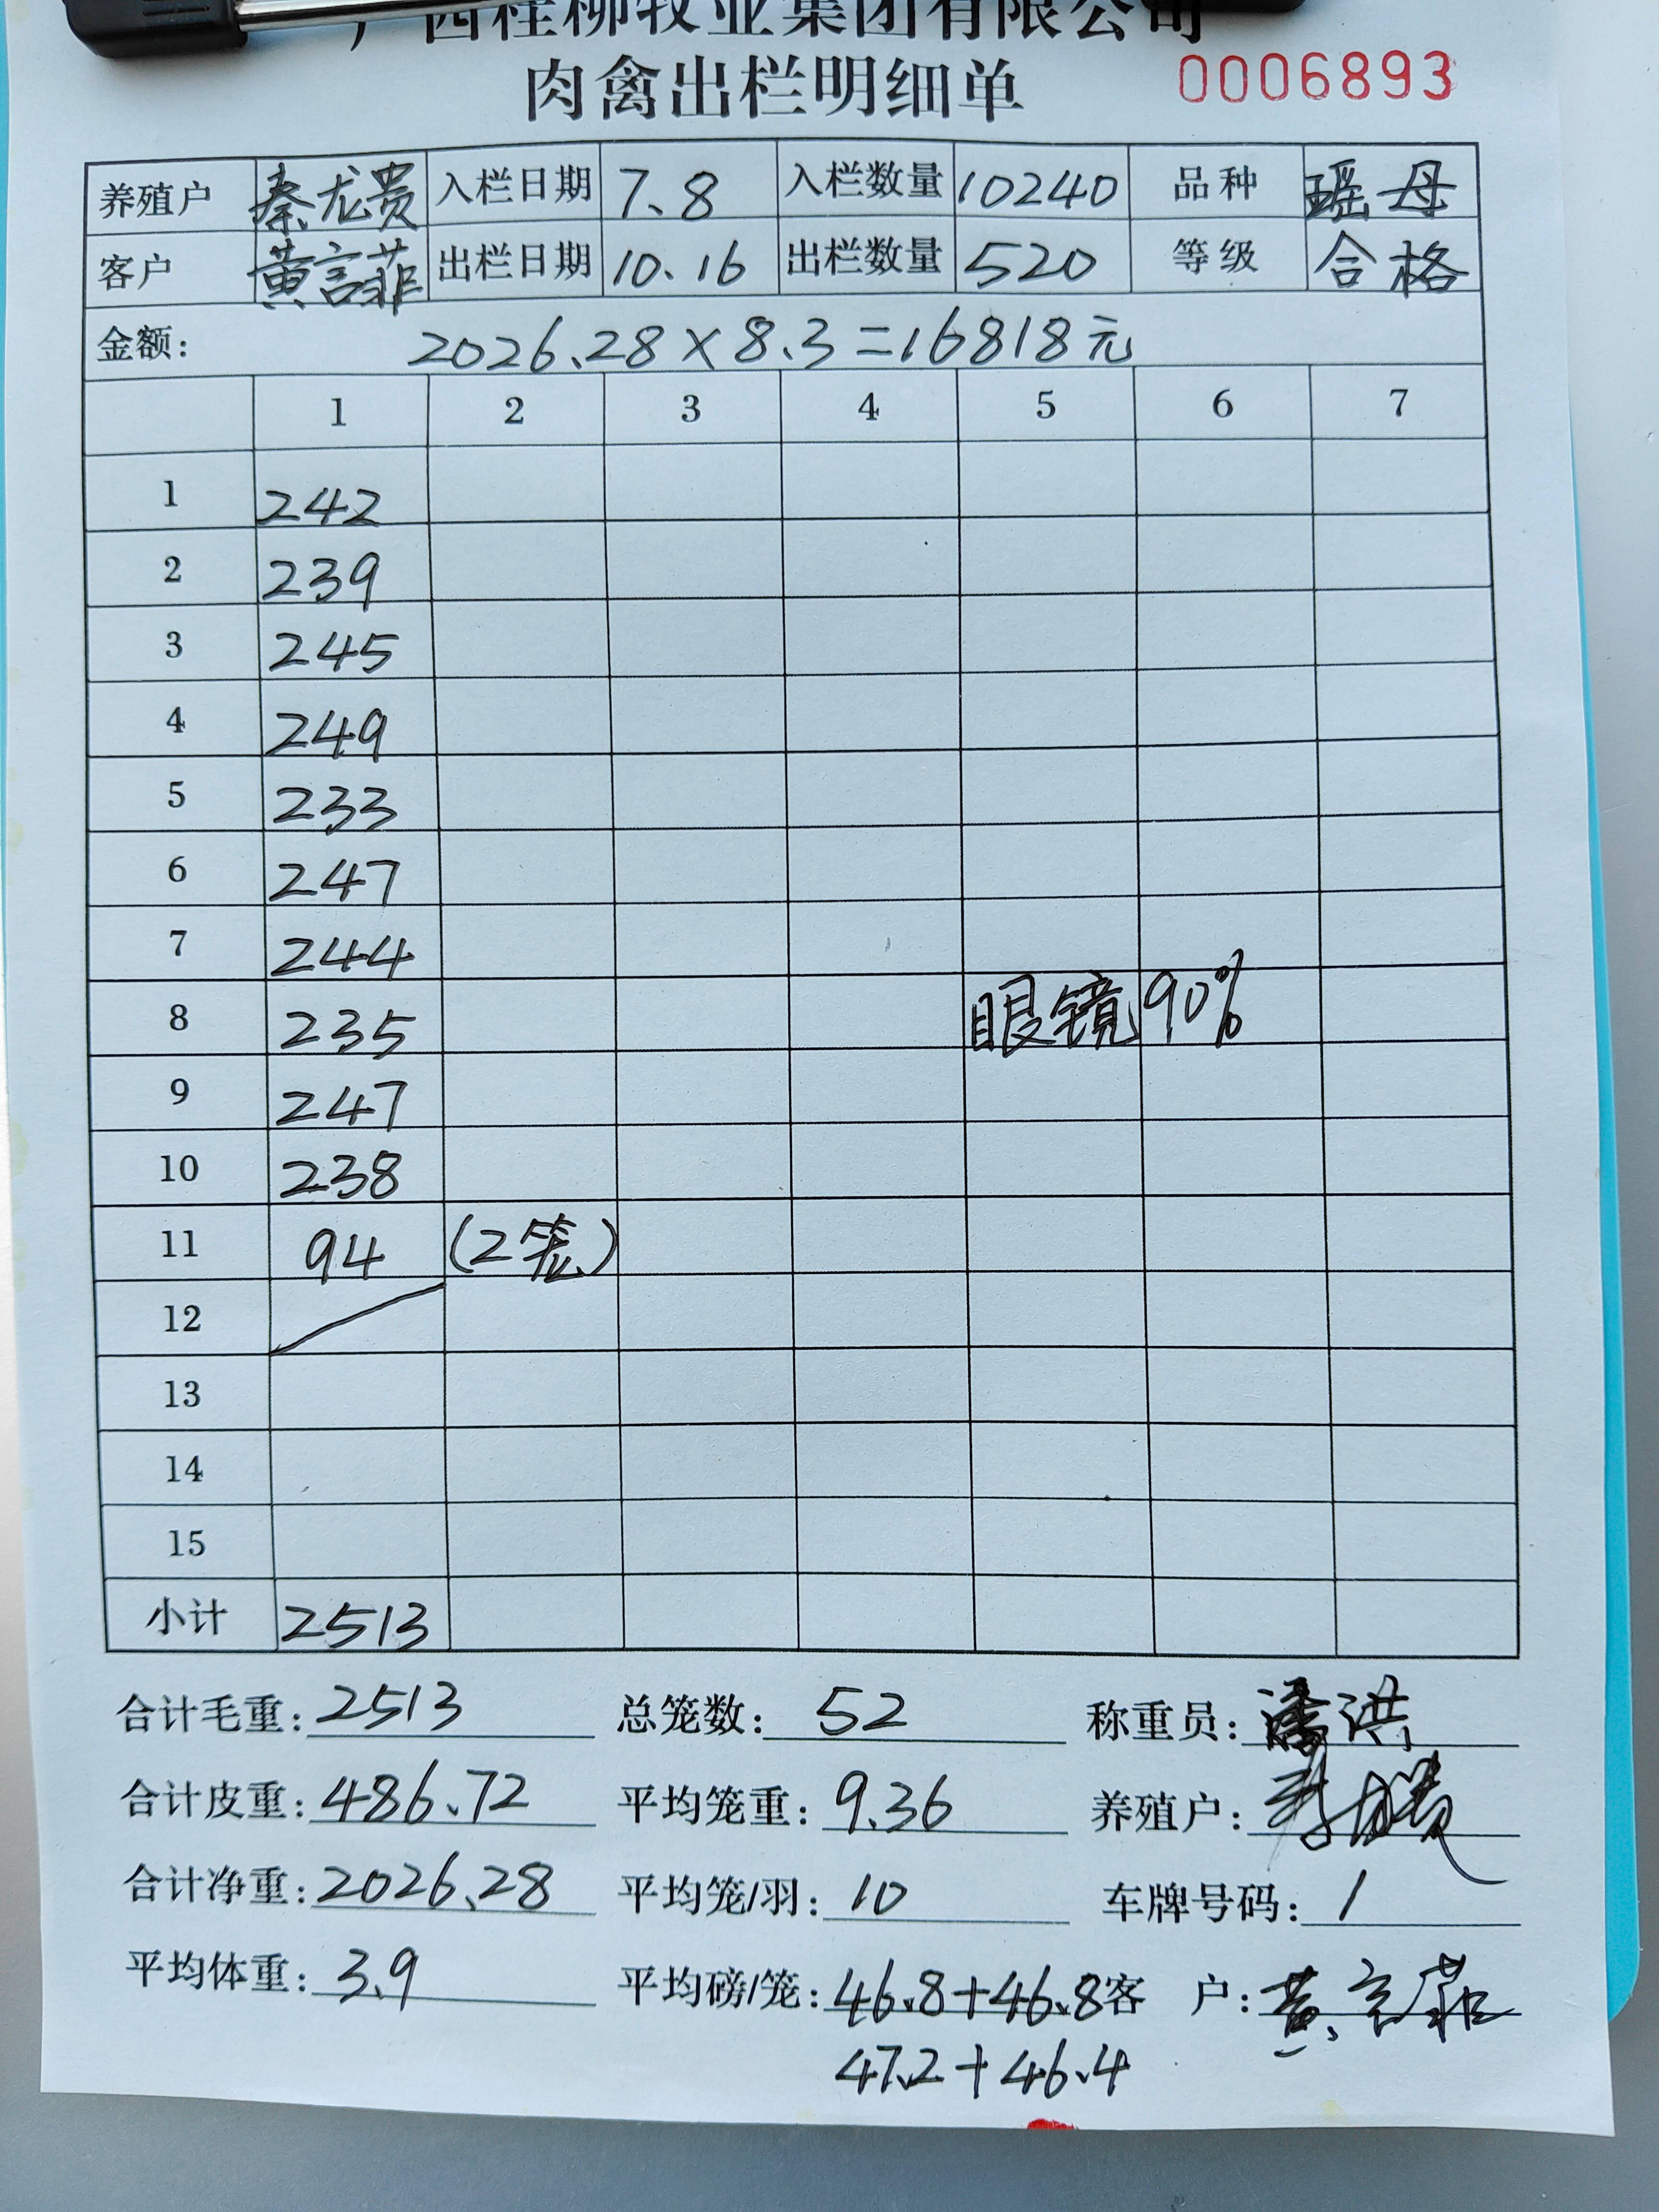 广西桂柳牧业集团有限公司
肉禽出栏明细单 0006893
养殖户 秦龙贵 入栏日期 7.8 入栏数量 10240 品种 瑶母
客户 黄言菲 出栏日期 10.16 出栏数量 520 等级 合格
金额: 2026.28×8.3=16818元
1 2 3 4 5 6 7
1 242
2 239
3 245
4 249
5 233
6 247
7 244
8 235 眼镜90%
9 247
10 238
11 94 (2笼)
12
13
14
15
小计 2513
合计毛重: 2513 总笼数: 52 称重员: 潘洪
合计皮重: 486.72 平均笼重: 9.36 养殖户:
合计净重: 2026.28 平均笼/羽: 10 车牌号码: 1
平均体重: 3.9 平均磅/笼: 46.8+46.8 客户: 黄言菲
47.2+46.4